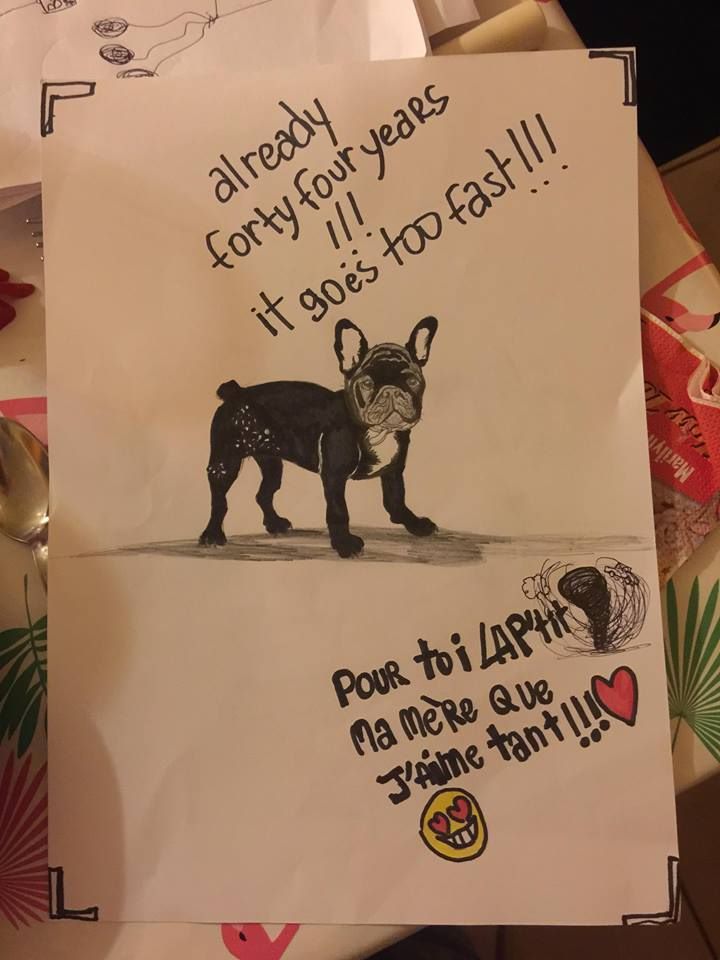 already
forty four years
!!!
it goes too fast!!!
Pour toi LAP'tit
Ma Mère Que
J'Aime tant!!!
Marilyn